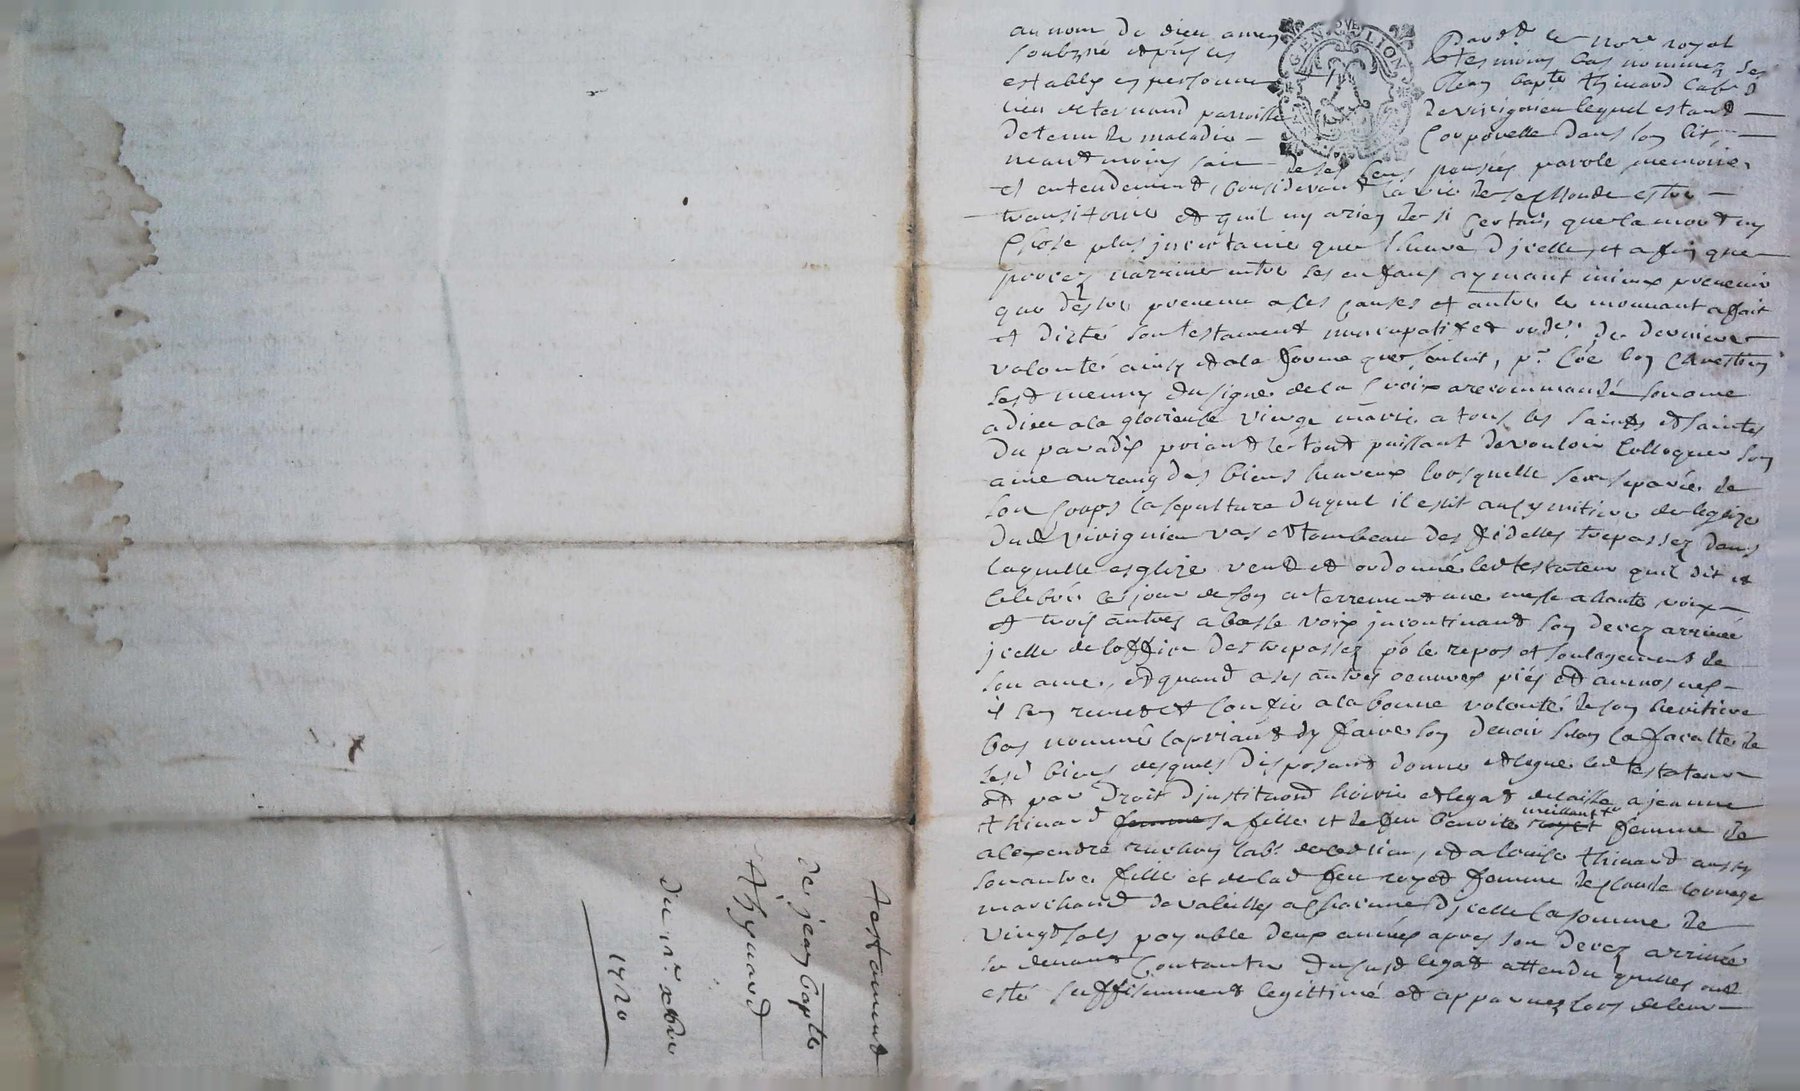 au nom de dieu amen Pardt le nore royal
soubzné et pnts les tesmoins bas nommez se
establÿ en personne Jean bapte thinard labr d
lieu de ternand parroisse de virignieu lequel estant
detenu de maladie corporelle dans son lit
neantmoins sain de ses sens pensées parole memoire
et entendement, considerant la vie de se monde estre
transitoire et quil ny a rien de si certain que la mort ny
chose plus jncertaine que lheure djcelle, et afin que
procez narrive entre ses enfans aymant mieux prevenir
que destre prevenu a ses causes et autre le mouvant a fait
et dicté son testament nuncupatif et ordce de derniere
volonté ainsy et a la forme que sensuit, pr coe bon chrestien
sest meuny du signe de la croix a recommandé son ame
a dieu a la glorieuse vierge marie a tous les saints et saintes
du paradis priant le tout puissant de vouloir colloquer son
ame au rang des biens heureux lorsquelle sera separée de
son corps la sepulture duquel il eslit au symitiere de leglize
dud virignieu vas et tombeau des fidelles trepassez dans
laquelle esglize veut et ordonne led testateur quil dit et
celebré le jour de son enterrement une messe a haute voix
et trois autres a basse voix jncontinant son decez arrivée
jcelle de loffice des trepassez po le repos et soulagement de
son ame, et quand a ses autres oeuvres piés et aumosnes
il sen remet et confie a la bonne volonté de son heritiere
bas nommé la priant dy faire son devoir selon la faculté de
sesd biens desquels disposant donne et legue led testateur
et par droit djnstituon hoirie et legat delaisse a jeanne
thinard femme sa fille et de feu benoite meillant royet femme de
alexendre labr dud lieu, et a louise thinard aussy
son autre fille et de lad feu royet femme de claude
marchand de valeilles a chacune djcelle la somme de
vingt sols payable deux années apres son decez arrivée
se devant contanter dususd legat attendu quelles ont
esté suffisamment legittimé et appannez lors de leur
testament
de jean bapte
thynard
du xbre
1720